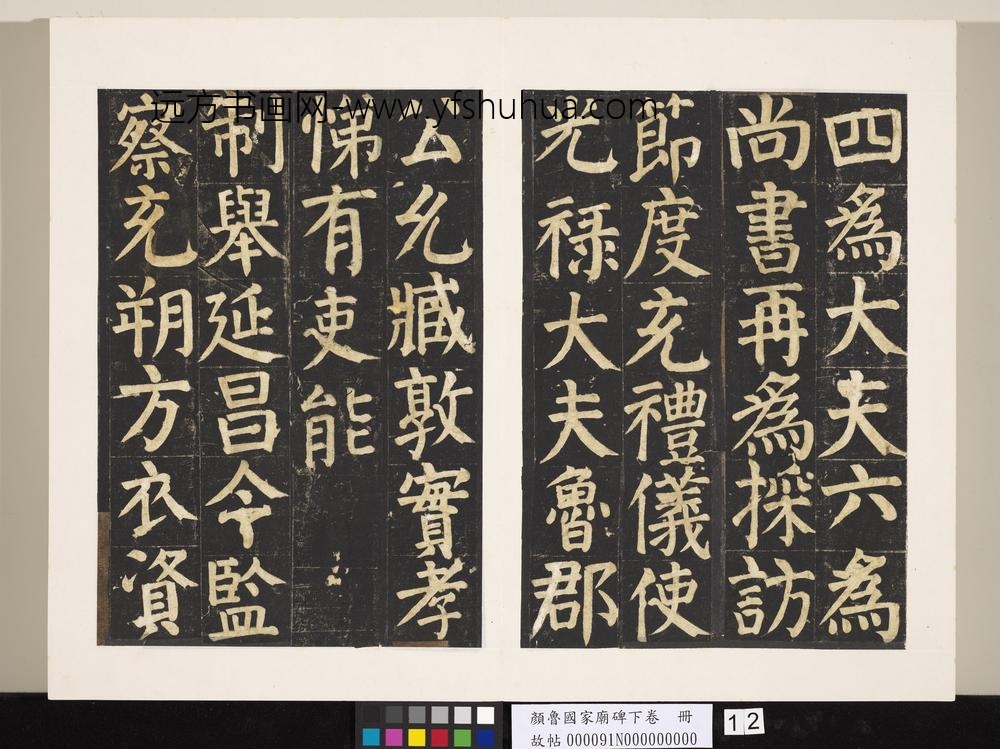 远方书画网-www.yfshuhua.com
四爲大夫六爲
尚書再爲採訪
節度充禮儀使
光禄大夫魯郡
公允臧敦實孝
悌有吏能
制舉延昌令監
察充朔方衣資
顏魯國家廟碑下卷 冊
故帖 000091N000000000
12